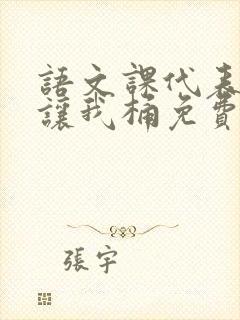 語文課代表
讓我桶免費
張宇